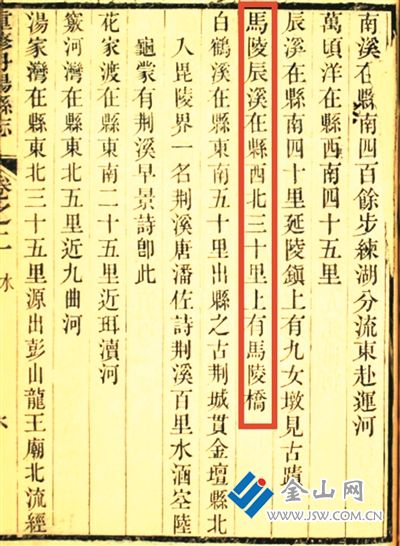 南溪在縣南四百餘步練湖分流東赴運河
萬頃洋在縣西南四十五里
辰溪在縣南四十里延陵鎮上有九女墩見古蹟
馬陵辰溪在縣西北三十里上有馬陵橋
白鶴溪在縣東南五十里出縣之古荆城貫金壇縣北
入毘陵界一名荆溪唐潘佐詩荆溪百里水涵空陸
龜蒙有荆溪早景詩卽此
花家渡在縣東南二十五里近珥瀆河
簌河灣在縣東北五里近九曲河
湯家灣在縣東北三十五里源出彭山龍王廟北流經
重修丹陽縣志
卷之二
水
金山网
www.JSW.com.cn